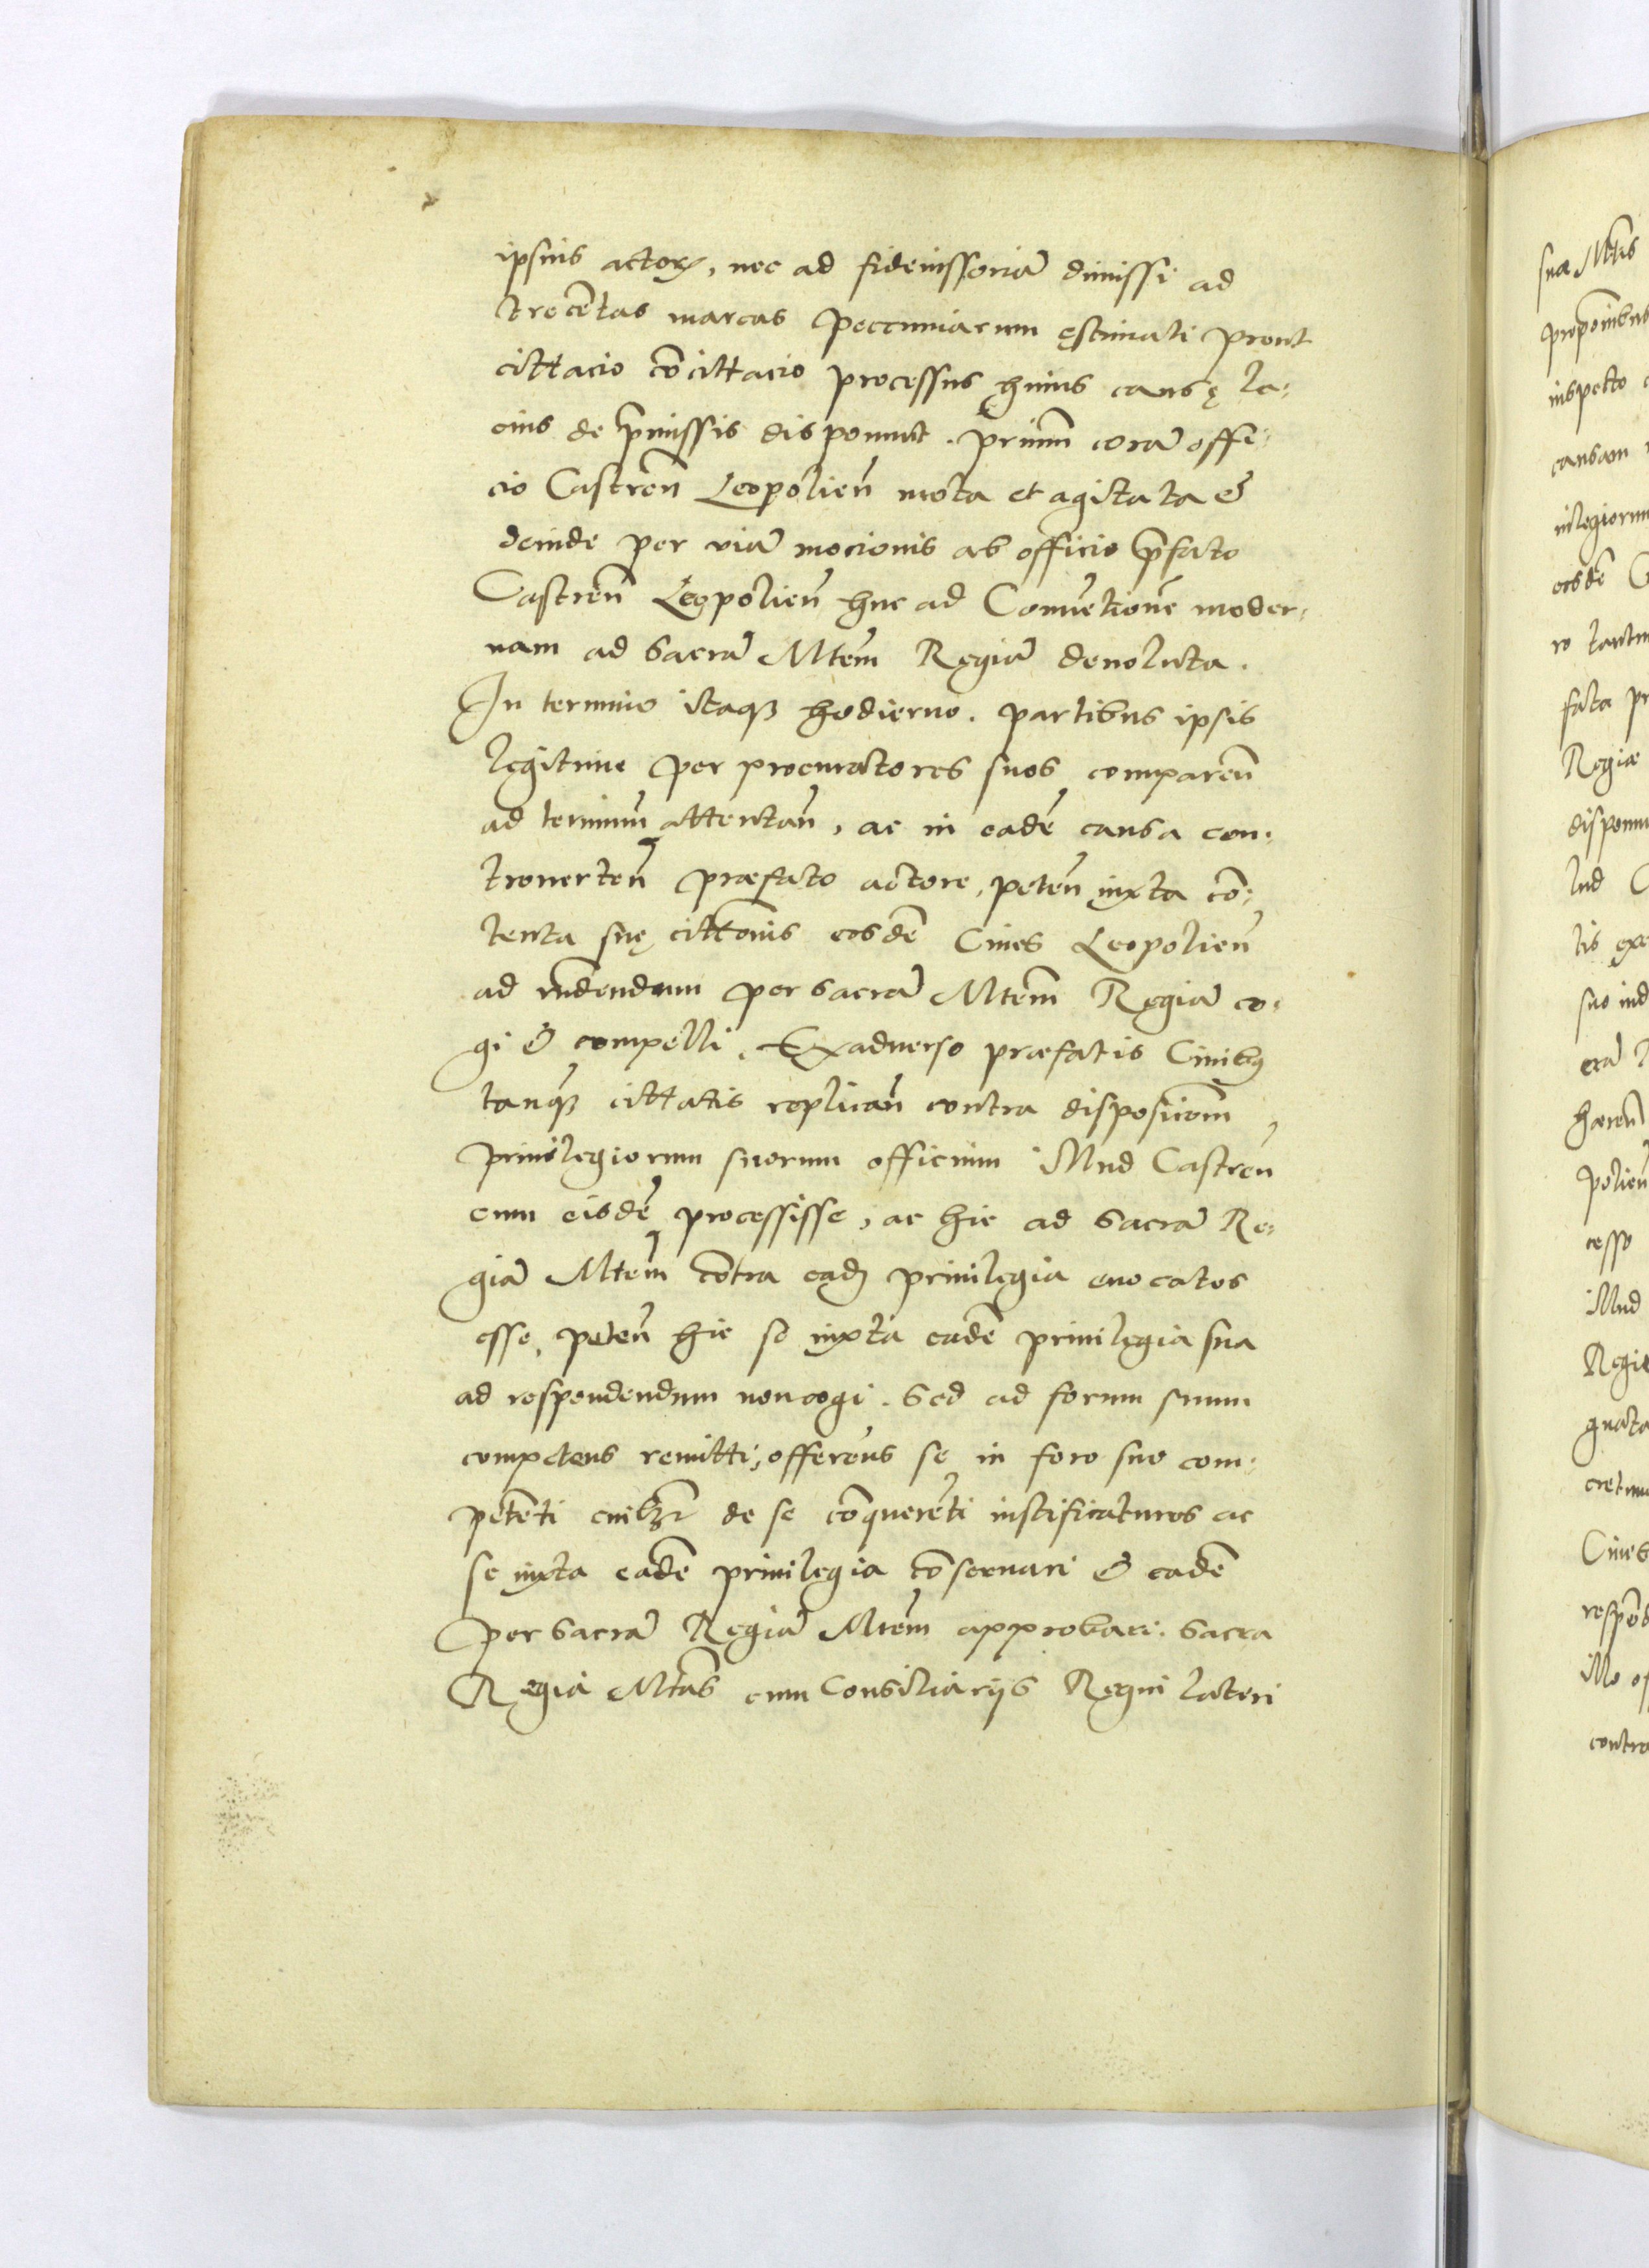 ipsius actor, nec ad fideiussoriã dimissi ad
trecẽtas marcas peccuniarum ęstimati prout
cittacio cõcittacio processus huius causę la-
cius de p̃missis disponunt. primũ corã offi-
cio Castreñ Leopolieñ mota et agitata &
deinde per viã mocionis ab officio p̃fato
Castreñ Leopolieñ huc ad Conuẽtionẽ moder-
nam ad Sacrã Mtem̃ Regiã deuoluta.
In termino itaqz hodierno. partibus ipsis
legitime per procuratores suos compareñ
ad terminũ attentañ, ac in eadẽ causa con-
trouerteñ præfato actore, peteñ iuxta cõ-
tenta suę cittõnis eosdẽ Ciues Leopolieñ
ad rñdendum per Sacrã Mtem̃ Regiã co-
gi & compelli. Exaduerso præfatis Ciuibꝫ
tanqz cittatis replicañ contra disposiciom̃
priuilegiorum suorum officium illud Castreñ
cum eisdẽ processisse, ac hic ad Sacrã Re-
giã Mtem̃ cõtra eadẽ priuilegia euocatos
esse, peteñ hic se iuxta eadẽ priuilegia sua
ad respondendum non cogi. Sed ad forum suum
competens remitti, offerens se in foro suo com-
petẽti cuilibet de se cõquerẽti iustificaturos ac
se iuxta eadẽ priuilegia cõseruari & eadẽ
per Sacrã Regiã Mtem̃ approbari. Sacra
Regia Mtas̃ cum Consiliarijs Regni lateri
suæ Mtis
proponibus
inspecto
causam
uilegiorum
eosdẽ
ro tantu
fata pr
Regiæ
disponu
lud C
tis exe
suo iud
crã
hæreñ
polieñ
cesso
illud
Regie
gnata
cretum
Ciues
respõd
illo of
contra